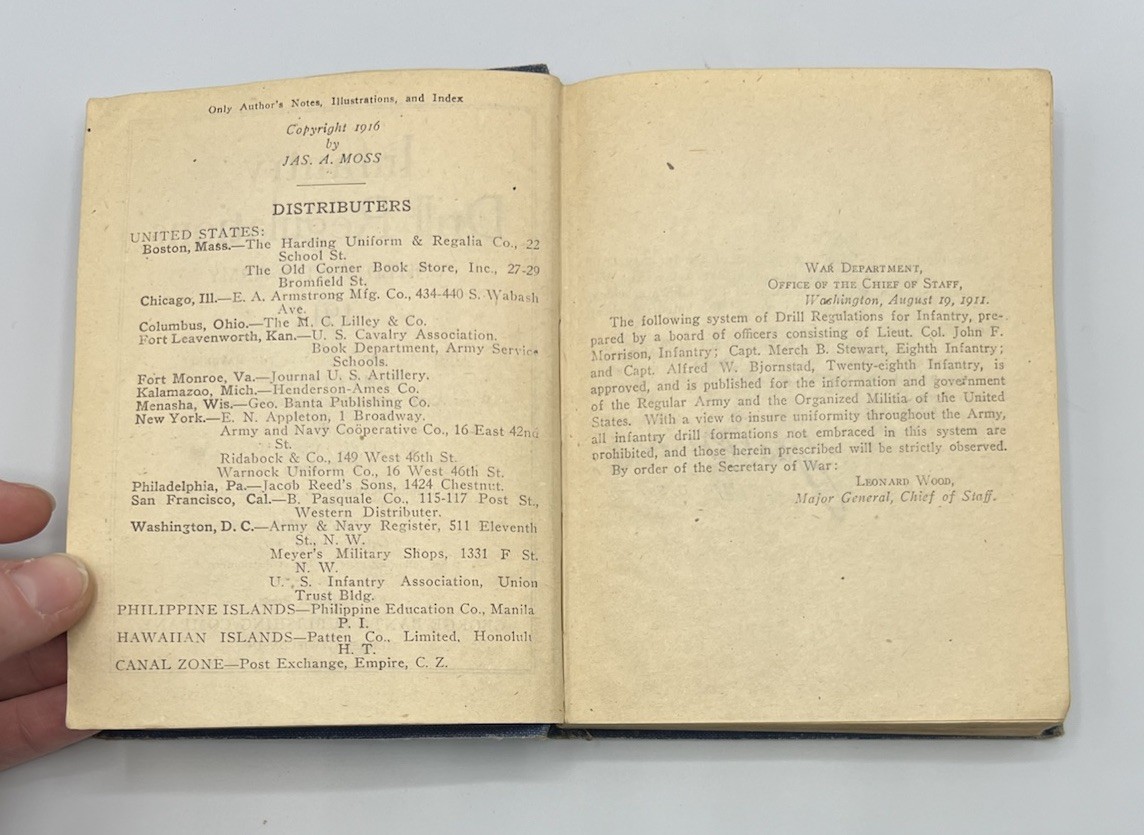 Only Author's Notes, Illustrations, and Index
Copyright 1916
by
JAS. A. MOSS
DISTRIBUTERS
UNITED STATES:
Boston, Mass.—The Harding Uniform & Regalia Co., 22
School St.
The Old Corner Book Store, Inc., 27-29
Bromfield St.
Chicago, Ill.—E. A. Armstrong Mfg. Co., 434-440 S. Wabash
Ave.
Columbus, Ohio.—The M. C. Lilley & Co.
Fort Leavenworth, Kan.—U. S. Cavalry Association.
Book Department, Army Service
Schools.
Fort Monroe, Va.—Journal U. S. Artillery.
Kalamazoo, Mich.—Henderson-Ames Co.
Menasha, Wis.—Geo. Banta Publishing Co.
New York.—E. N. Appleton, 1 Broadway.
Army and Navy Coöperative Co., 16 East 42nd
St.
Ridabock & Co., 149 West 46th St.
Warnock Uniform Co., 16 West 46th St.
Philadelphia, Pa.—Jacob Reed's Sons, 1424 Chestnut.
San Francisco, Cal.—B. Pasquale Co., 115-117 Post St.,
Western Distributer.
Washington, D. C.—Army & Navy Register, 511 Eleventh
St., N. W.
Meyer's Military Shops, 1331 F St.
N. W.
U. S. Infantry Association, Union
Trust Bldg.
PHILIPPINE ISLANDS—Philippine Education Co., Manila
P. I.
HAWAIIAN ISLANDS—Patten Co., Limited, Honolulu
H. T.
CANAL ZONE—Post Exchange, Empire, C. Z.
WAR DEPARTMENT,
OFFICE OF THE CHIEF OF STAFF,
Washington, August 19, 1911.
The following system of Drill Regulations for Infantry, pre-
pared by a board of officers consisting of Lieut. Col. John F.
Morrison, Infantry; Capt. Merch B. Stewart, Eighth Infantry;
and Capt. Alfred W. Bjornstad, Twenty-eighth Infantry, is
approved, and is published for the information and government
of the Regular Army and the Organized Militia of the United
States. With a view to insure uniformity throughout the Army,
all infantry drill formations not embraced in this system are
prohibited, and those herein prescribed will be strictly observed.
By order of the Secretary of War:
LEONARD WOOD,
Major General, Chief of Staff.